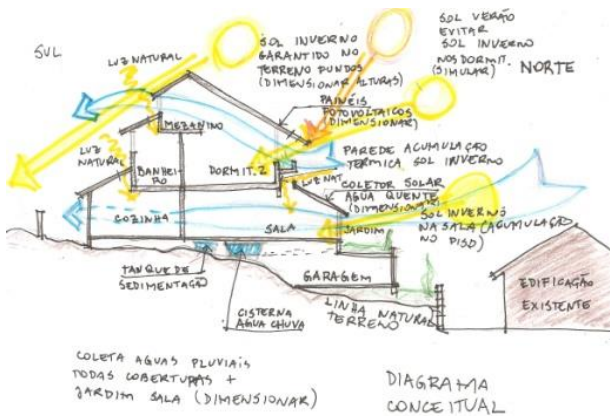 SUL
LUZ NATURAL
SOL INVERNO
GARANTIDO NO
TERRENO FUNDOS
(DIMENSIONAR ALTURAS)
SOL VERÃO
EVITAR
SOL INVERNO
NOS DORMIT.
(SIMULAR)
NORTE
PAINÉIS
FOTOVOLTAICOS
(DIMENSIONAR)
MEZANINO
LUZ
NATURAL
BANHEI-
RO
DORMIT. 2
PAREDE ACUMULAÇÃO
TERMICA SOL INVERNO
LUZ NAT.
COLETOR SOLAR
AGUA QUENTE
(DIMENSIONAR)
COZINHA
SALA
JARDIM
SOL INVERNO
NA SALA (ACUMULAÇÃO
NO PISO)
TANQUE DE
SEDIMENTAÇÃO
GARAGEM
CISTERNA
AGUA CHUVA
LINHA NATURAL
TERRENO
EDIFICAÇÃO
EXISTENTE
COLETA AGUAS PLUVIAIS
TODAS COBERTURAS +
JARDIM SALA (DIMENSIONAR)
DIAGRAMA
CONCEITUAL